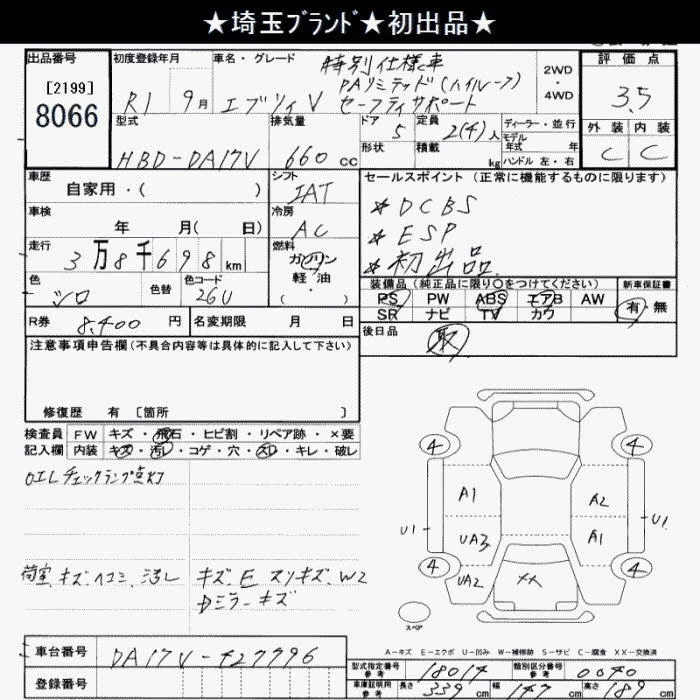 ★埼玉ﾌﾞﾗﾝﾄﾞ★初出品★
出品番号
[2199]
8066
初度登録年月
R1 9月
車名・グレード
特別仕様車
PAリミテッド(ハイルーフ)
エブリィV セーフティサポート
2WD
4WD
評価点
3.5
外装 内装
C C
型式
HBD-DA17V
排気量
660cc
ドア
5
形状
定員
2(4)人
積載
kg
ディーラー・並行
モデル
年式 年
ハンドル 左・右
車歴
自家用・( )
シフト
IAT
車検
年 月( 日)
冷房
AC
走行
3万8千698km
燃料
ガソリン
軽油・
( )
色
シロ
色替
色コード
26U
R券 8,400円
名変期限 月 日
セールスポイント(正常に機能するものに限ります)
*DCBS
*ESP
*初出品
装備品(純正品に限り○をつけてください)
新車保証書
PS PW ABS エアB AW
SR ナビ TV カワ
有・無
後日品
取
注意事項申告欄(不具合内容等は具体的に記入して下さい)
修復歴 有 [箇所 ]
検査員
記入欄
FW キズ・飛石・ヒビ割・リペア跡・×要
内装 キズ・汚レ・コゲ・穴・スレ・キレ・破レ
OIL チェックランプ点灯
荷室 キズ ヘコミ 汚レ
キズ、E スリキズ、W2
Dミラーキズ
4 4
A1 A2
U1 UA3 A1 U1
4 4
UA2 XX
スペア
A-キズ E-エクボ U-凹み W-補修跡 S-サビ C-腐食 XX-交換済
車台番号 DA17V-427796
登録番号
型式指定番号
参考
18014
類別区分番号
参考
0040
車庫証明用
参考
長さ 339cm 幅 147cm 高さ 189cm